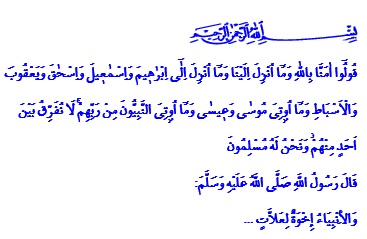 بِسْمِ اللهِ الرَّحْمٰنِ الرَّحِيمِ
قُولُٓوا اٰمَنَّا بِاللهِ وَمَٓا اُنْزِلَ اِلَيْنَا وَمَٓا اُنْزِلَ اِلٰٓى اِبْرٰه۪يمَ وَاِسْمٰع۪يلَ وَاِسْحٰقَ وَيَعْقُوبَ
وَالْاَسْبَاطِ وَمَٓا اُو۫تِيَ مُوسٰى وَع۪يسٰى وَمَٓا اُو۫تِيَ النَّبِيُّونَ مِنْ رَبِّهِمْۚ لَا نُفَرِّقُ بَيْنَ
اَحَدٍ مِنْهُمْۘ وَنَحْنُ لَهُ مُسْلِمُونَ
قَالَ رَسُولُ اللهِ صَلَّى اللهُ عَلَيْهِ وَسَلَّمَ:
وَالْأَنْبِيَاءُ إِخْوَةٌ لِعَلَّاتٍ ...